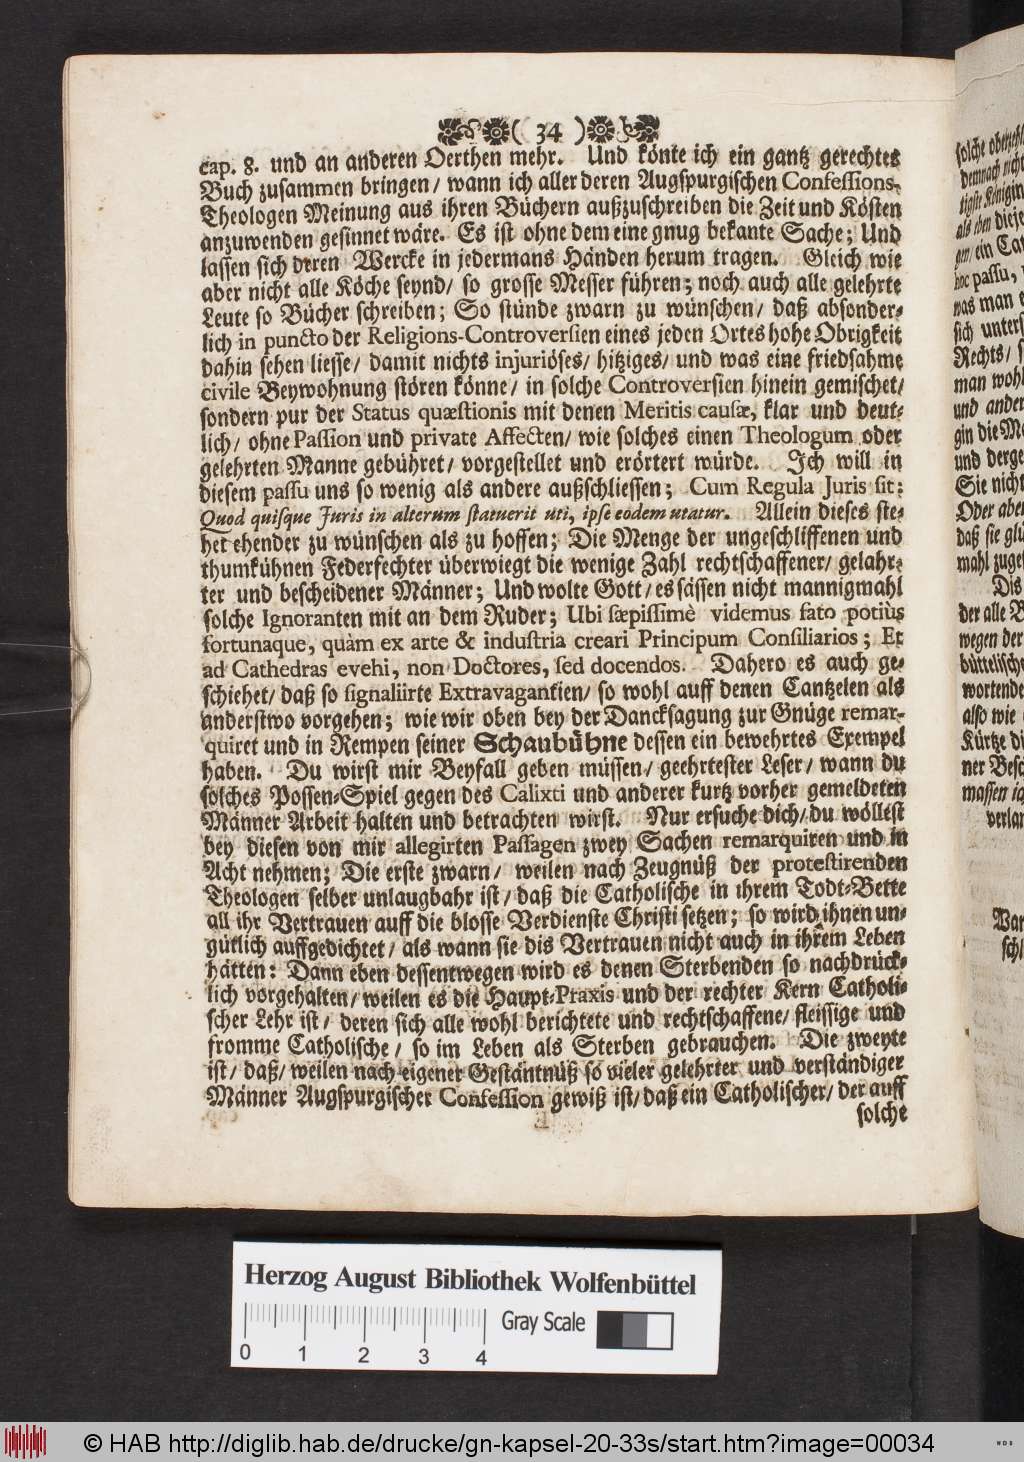 ( 34 )
cap. 8. und an anderen Oerthen mehr. Und könte ich ein gantz gerechtes
Buch zusammen bringen/ wann ich aller deren Augspurgischen Confessions-
Theologen Meinung aus ihren Büchern außzuschreiben die Zeit und Kösten
anzuwenden gesinnet wäre. Es ist ohne dem eine gnug bekante Sache; Und
lassen sich deren Wercke in jedermans Händen herum tragen. Gleich wie
aber nicht alle Köche seynd/ so grosse Messer führen; noch auch alle gelehrte
Leute so Bücher schreiben; So stünde zwarn zu wünschen/ daß absonder-
lich in puncto der Religions-Controversien eines jeden Ortes hohe Obrigkeit
dahin sehen liesse/ damit nichts injuriöses/ hitziges/ und was eine friedsahme
civile Beywohnung stören könne/ in solche Controversien hinein gemischet/
sondern pur der Status quæstionis mit denen Meritis causæ, klar und deut-
lich/ ohne Passion und private Affecten/ wie solches einen Theologum oder
gelehrten Manne gebühret/ vorgestellet und erörtert würde. Ich will in
diesem passu uns so wenig als andere außschliessen; Cum Regula Juris sit:
Quod quisque Juris in alterum statuerit uti, ipse eodem utatur. Allein dieses ste-
het ehender zu wünschen als zu hoffen; Die Menge der ungeschliffenen und
thumkühnen Federfechter überwiegt die wenige Zahl rechtschaffener/ gelahr-
ter und bescheidener Männer; Und wolte Gott/ es sässen nicht mannigmahl
solche Ignoranten mit an dem Ruder; Ubi sæpissimè videmus fato potiùs
fortunaque, quàm ex arte & industria creari Principum Consiliarios; Et
ad Cathedras evehi, non Doctores, sed docendos. Dahero es auch ge-
schiehet/ daß so signaliirte Extravagantien/ so wohl auff denen Cantzelen als
anderstwo vorgehen; wie wir oben bey der Dancksagung zur Gnüge remar-
quiret und in Rempen seiner Schaubühne dessen ein bewehrtes Exempel
haben. Du wirst mir Beyfall geben müssen/ geehrtester Leser/ wann du
solches Possen-Spiel gegen des Calixti und anderer kurtz vorher gemeldeten
Männer Arbeit halten und betrachten wirst. Nur ersuche dich/ du wöllest
bey diesen von mir allegirten Passagen zwey Sachen remarquiren und in
Acht nehmen; Die erste zwarn/ weilen nach Zeugnüß der protestirenden
Theologen selber unlaugbahr ist/ daß die Catholische in ihrem Todt-Bette
all ihr Vertrauen auff die blosse Verdienste Christi setzen; so wird ihnen un-
gütlich auffgedichtet/ als wann sie dis Vertrauen nicht auch in ihrem Leben
hätten: Dann eben dessentwegen wird es denen Sterbenden so nachdrück-
lich vorgehalten/ weilen es die Haupt-Praxis und der rechter Kern Catholi-
scher Lehr ist/ deren sich alle wohl berichtete und rechtschaffene/ fleissige und
fromme Catholische/ so im Leben als Sterben gebrauchen. Die zweyte
ist/ daß/ weilen nach eigener Gestäntnüß so vieler gelehrter und verständiger
Männer Augspurgischer Confession gewiß ist/ daß ein Catholischer/ der auff
solche
Herzog August Bibliothek Wolfenbüttel
Gray Scale
0 1 2 3 4
© HAB http://diglib.hab.de/drucke/gn-kapsel-20-33s/start.htm?image=00034